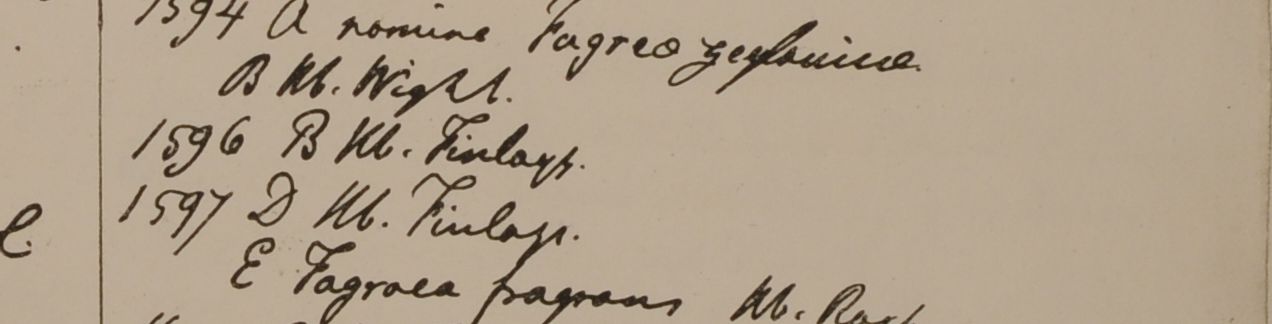 1594 A nomine Fagreæ zeylanicæ.
B Hb. Wight.
1596 B Hb. Finlays.
1597 D Hb. Finlays.
E Fagraea fragrans Hb. Roxb